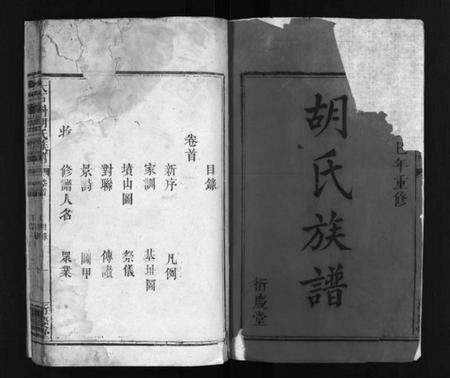 年重修
胡氏族譜
衍慶堂
目錄
卷首
新序 凡例
家訓 基址圖
墳山圖 祭儀
對聯 傳
景詩 圖甲
修譜人名 眾業